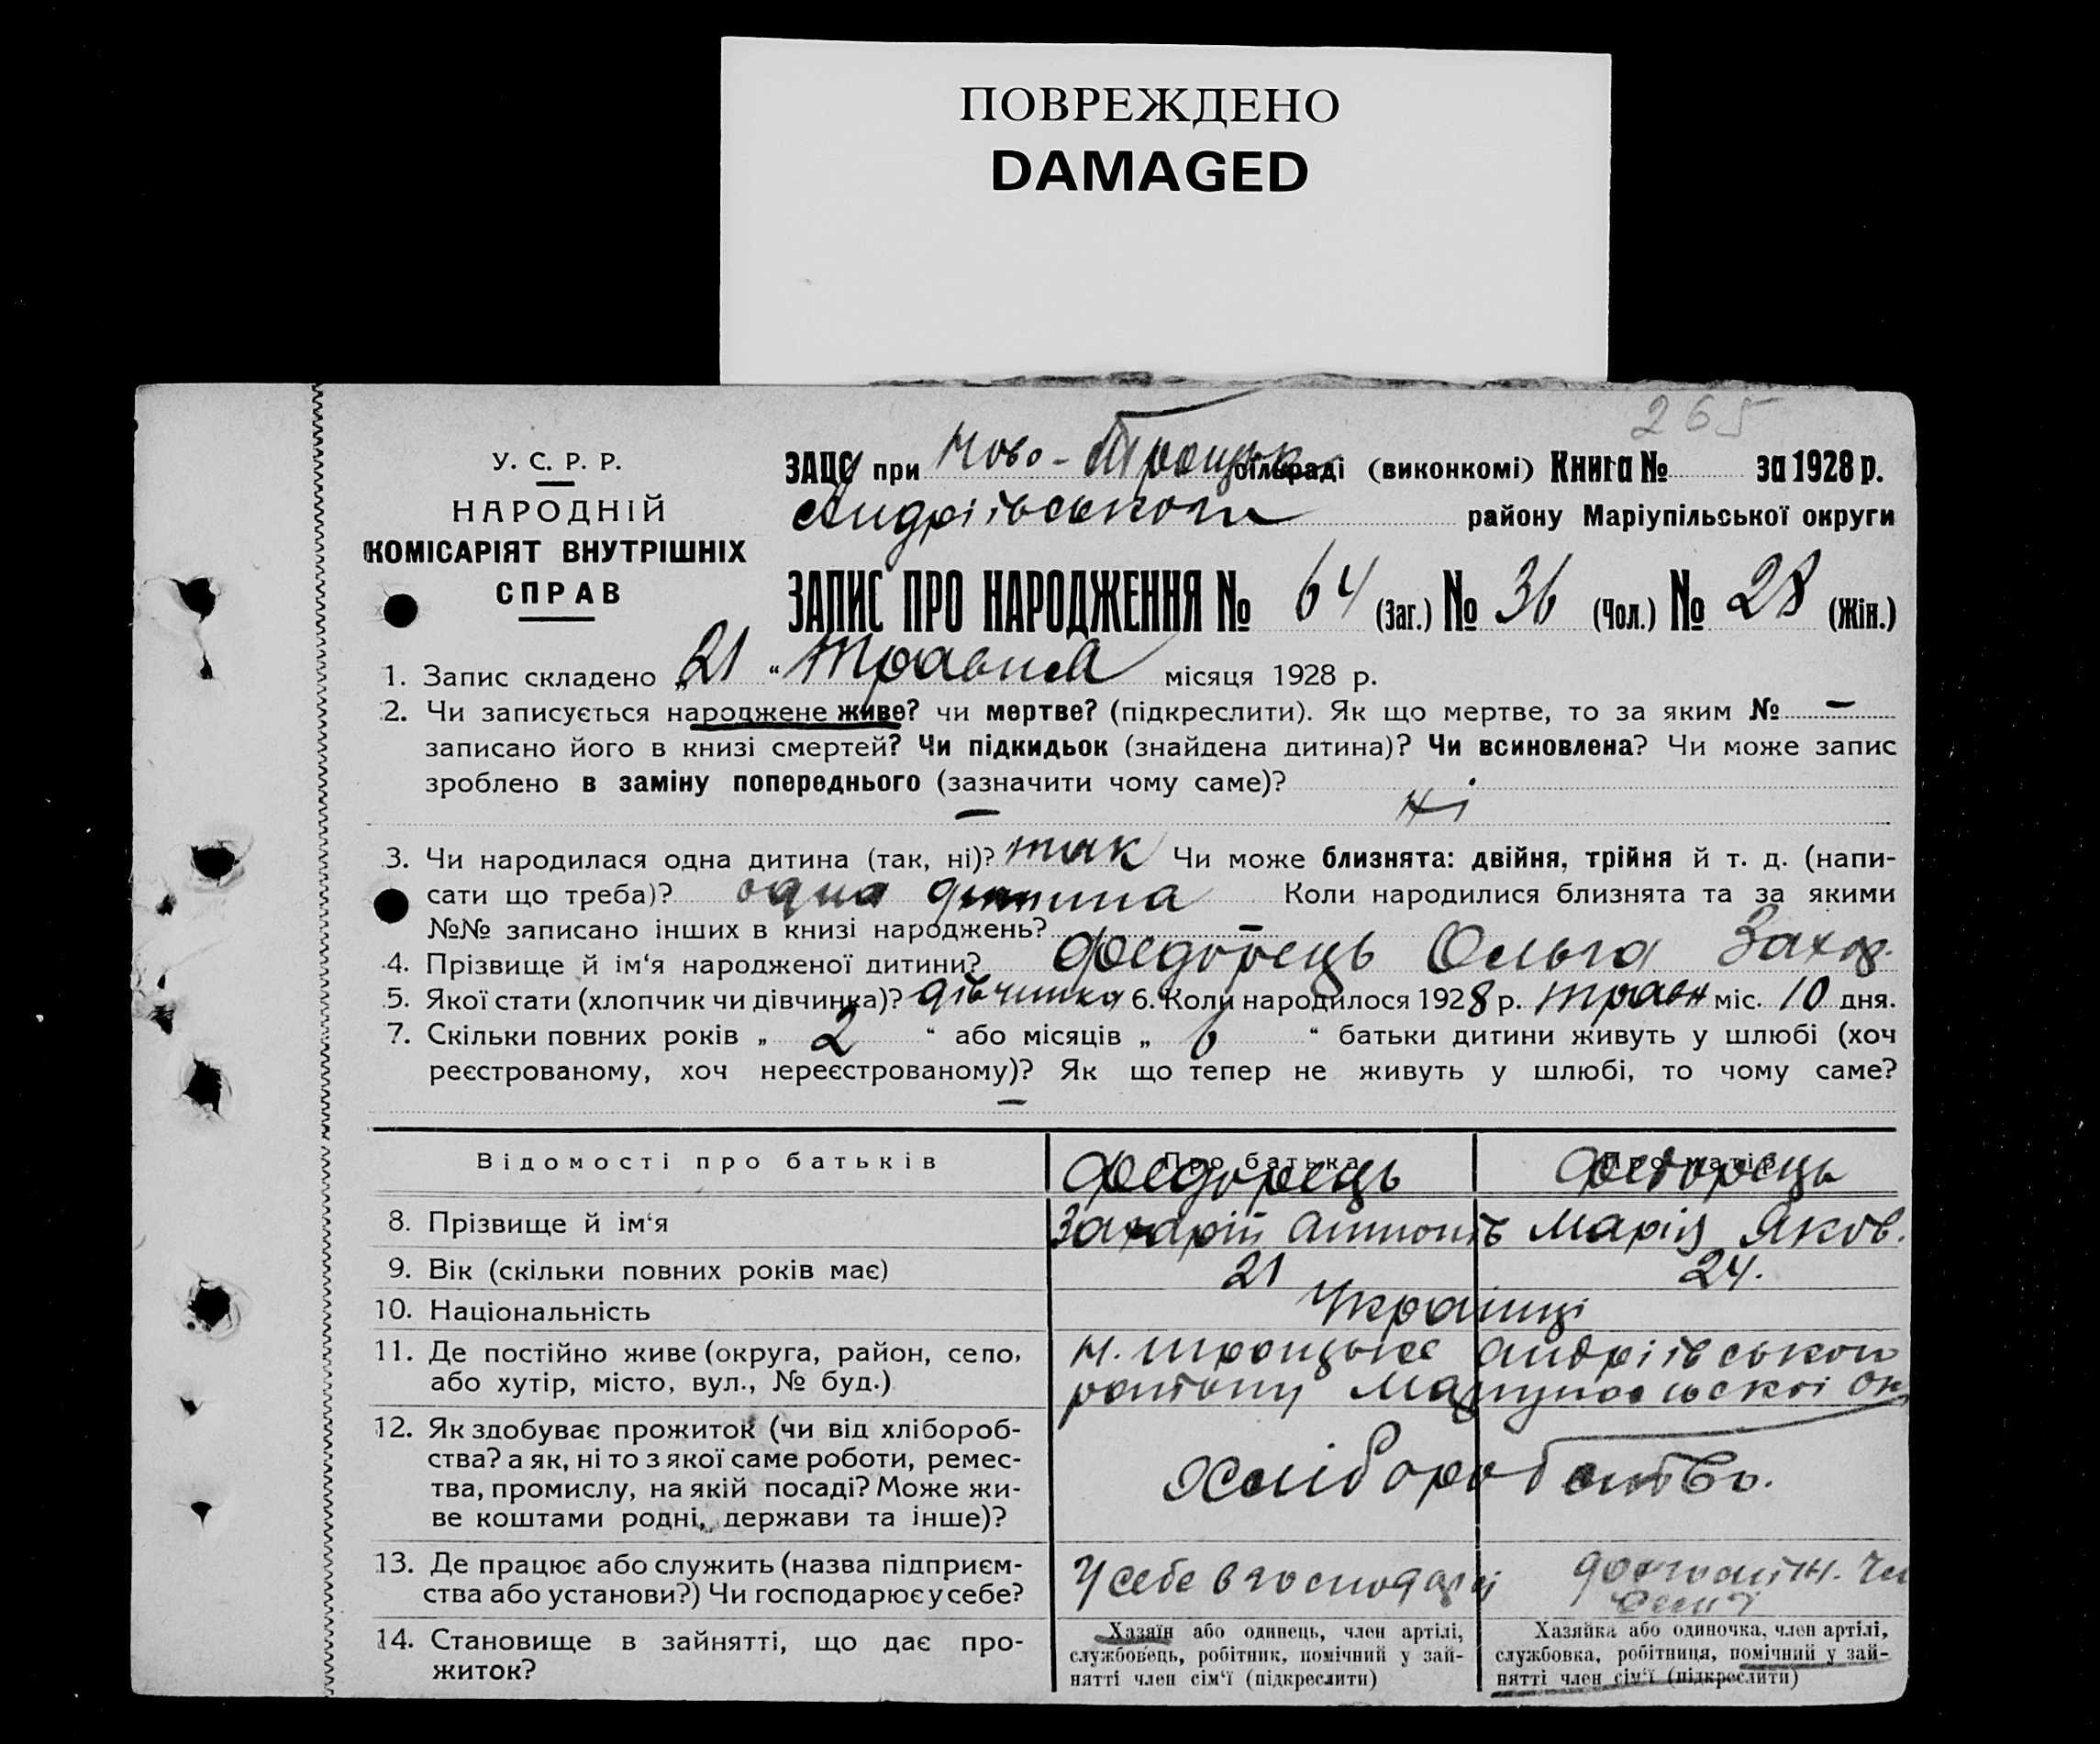 ПОВРЕЖДЕНО
DAMAGED
265
У. С. Р. Р.
НАРОДНІЙ
КОМІСАРІЯТ ВНУТРІШНІХ
СПРАВ
ЗАЦС при Ново-Троцьк сільраді (виконкомі) Книга № за 1928 р.
Андріївського району Маріупільської округи
ЗАПИС ПРО НАРОДЖЕННЯ № 64 (Заг.) № 36 (Чол.) № 28 (Жін.)
1. Запис складено „21“ травня місяця 1928 р.
2. Чи записується народжене живе? чи мертве? (підкреслити). Як що мертве, то за яким № —
записано його в книзі смертей? Чи підкидьок (знайдена дитина)? Чи всиновлена? Чи може запис
зроблено в заміну попереднього (зазначити чому саме)?
— ні
3. Чи народилася одна дитина (так, ні)? так Чи може близнята: двійня, трійня й т. д. (напи-
сати що треба)? одна дитина Коли народилися близнята та за якими
№№ записано інших в книзі народжень? —
4. Прізвище й ім‘я народженої дитини? Федорець Ольга Захар.
5. Якої стати (хлопчик чи дівчинка)? дівчинка 6. Коли народилося 1928 р. травн міс. 10 дня.
7. Скільки повних років „ 2 “ або місяців „ 6 “ батьки дитини живуть у шлюбі (хоч
реєстрованому, хоч нереєстрованому)? Як що тепер не живуть у шлюбі, то чому саме?
—
Відомості про батьків Про батька Про матір
Федорець Федорець
8. Прізвище й ім‘я Захарій Антонів Марія Яков.
9. Вік (скільки повних років має) 21 24.
10. Національність Українці
11. Де постійно живе (округа, район, село, Н. Троцьке Андріївського
або хутір, місто, вул., № буд.) району Маріупольської ок
12. Як здобуває прожиток (чи від хлібороб-
ства? а як, ні то з якої саме роботи, ремес-
тва, промислу, на якій посаді? Може жи- Хліборобство.
ве коштами родні, держави та інше)?
13. Де працює або служить (назва підприєм- У себе в господарстві
ства або установи?) Чи господарює у себе? семі
14. Становище в зайнятті, що дає про-
житок?
Хазяїн або одинець, член артілі,
службовець, робітник, помічний у зай-
нятті член сім‘ї (підкреслити)
Хазяйка або одиночка, член артілі,
службовка, робітниця, помічний у зай-
нятті член сім‘ї (підкреслити)